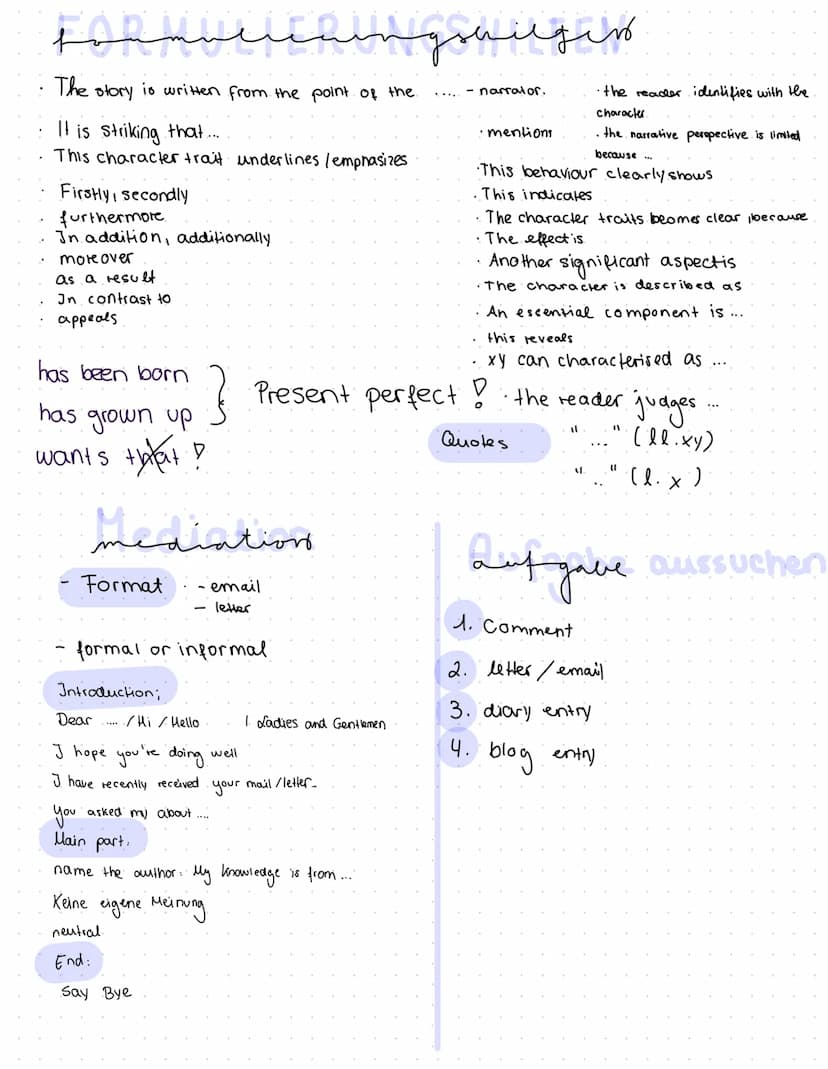 FORMULIERUNGSHILFEN
formulierungshilfen
· The story is written from the point of the .... - narrator.
· It is striking that ...
· This character trait underlines / emphasizes
· Firstly, secondly
· furthermore
· In addition, additionally
· moreover
as a result
· In contrast to
· appeals
· the reader identifies with the
character
· mentions
· the narrative perspective is limited
because ...
· This behaviour clearly shows
· This indicates
· The character traits becomes clear, because
· The effect is
· Another significant aspect is
· The character is described as
· An escential component is ...
· this reveals
· xy can characterised as ...
has been born
has grown up
Present perfect!
wants that!
· the reader judges ...
Quotes
"..." (ll.xy)
".." (l. x)
Mediation
mediation
- Format · - email
- letter
- formal or informal
Introduction;
Dear .... / Hi / Hello / Ladies and Gentlemen
I hope you're doing well
I have recently received your mail / letter.
You asked my about ....
Main part:
name the author: My knowledge is from ...
Keine eigene Meinung
neutral
End:
Say Bye
Aufgabe aussuchen
aufgabe
1. Comment
2. letter / email
3. diary entry
4. blog entry